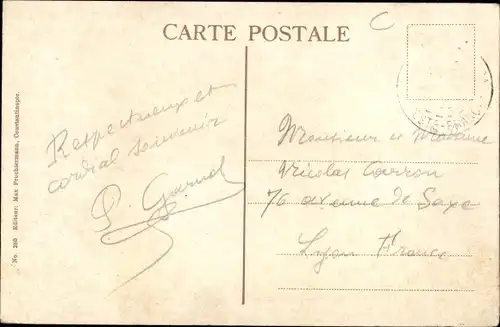 CARTE POSTALE
C
Respectueux et
cordial souvenir
P.
Monsieur et Madame
Nicolas Carron
76 avenue de Saxe
Lyon France
No. 260 Editeur: Max Fruchtermann, Constantinople.